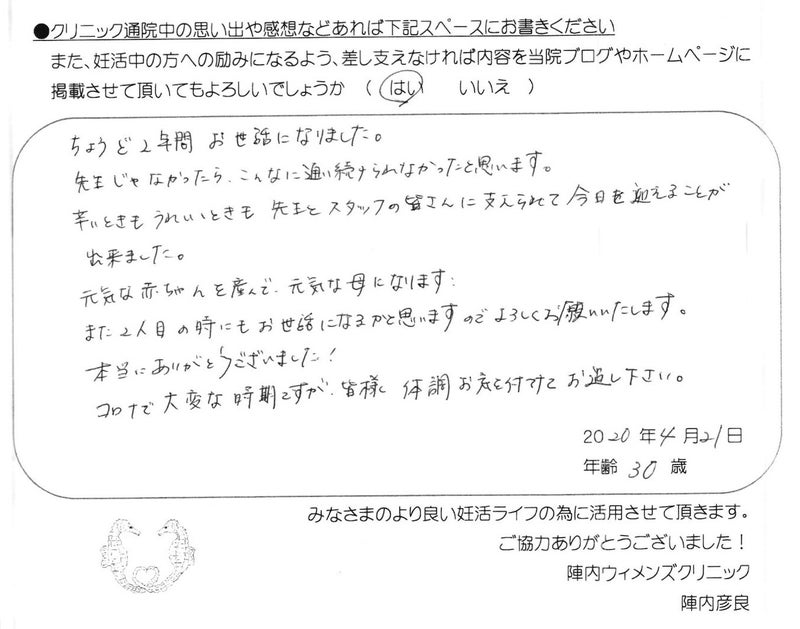 ●クリニック通院中の思い出や感想などあれば下記スペースにお書きください
また、妊活中の方への励みになるよう、差し支えなければ内容を当院ブログやホームページに
掲載させて頂いてもよろしいでしょうか （ はい いいえ ）
ちょうど2年間 お世話になりました。
先生じゃなかったら、こんなに通い続けられなかったと思います。
辛いときも うれしいときも 先生とスタッフの皆さんに支えられて今日を迎えることが
出来ました。
元気な赤ちゃんを産んで、元気な母になります。
また2人目の時にもお世話になるかと思いますのでよろしくお願いいたします。
本当にありがとうございました！
コロナで大変な時期ですが、皆様 体調お気を付けて お過し下さい。
2020年4月21日
年齢 30 歳
みなさまのより良い妊活ライフの為に活用させて頂きます。
ご協力ありがとうございました！
陣内ウィメンズクリニック
陣内彦良